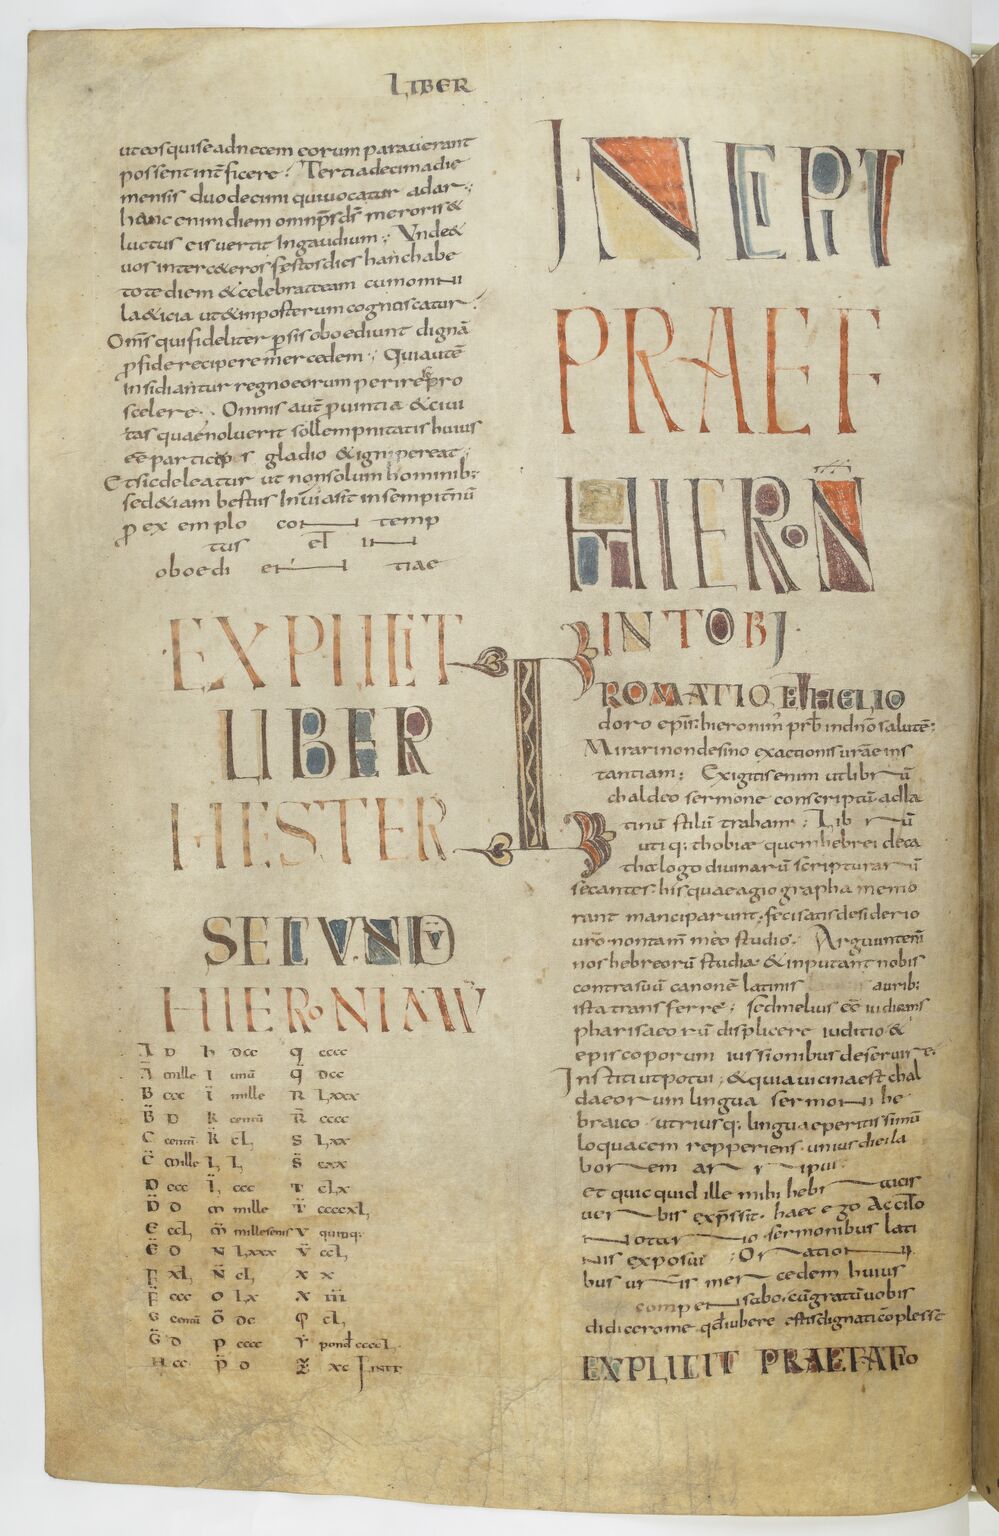 LIBER
ut eos qui se ad necem eorum paraverant
possent int̄ficere. Tertiadecima die
mensis duodecimi qui vocatur adar;
hanc enim diem omnip̄s d̄s meroris &
luctus eis vertit In gaudium; Vnde &
vos inter c&eros festos dies hanc habe
tote diem & celebrate eam cum omni
la&icia ut & in posterum cognoscatur.
Om̄s qui fideliter p̱sis oboediunt dignā
p̱ fide recipere mercedem; Qui autē
Insidiantur regno eorum perire p̱ro
scelere. Omnis aut̄ p̱uintia & ciui
tas quae noluerit sollempnitatis huius
eē particeps gladio & igni pereat;
Et sic deleatur ut non solum hominib;
sed &iam bestiis Inuia sit in sempit̄nū
p̱ exemplo con temp
tus et in
oboedi en tiae
EXPLICIT
LIBER
HESTER
SECUND
HIERoNIAM
A D h dcc q cccc
Ä mille I unū q̈ dcc
B ccc ï mille R Lxxx
B̈ D k centū R̈ cccc
C centū k̈ cL S Lxx
C̈ mille L L S̈ cxx
D ccc L̈ ccc T cLx
D̈ D m mille T̈ ccccxL
e ccL m̈ mille seni v quinq;
ë D N Lxxx v̈ ccL
F xL N̈ cL x x
F̈ ccc O Lx ẍ iii
G centū Ö dc Y cL
G̈ D p cccc Ÿ pond̄ cccc L
H cc p̈ D Z xc FINIT
INCIPIT
PRAEF
HIERoN
IN TOBI
CROMATIO ET HELIO
doro ep̄is hieronim̄ prb̄ in dn̄o salutē;
Mirari non desino exactionis ur̄ae ins
tantiam; Exigitis enim ut librū
chaldeo sermone conscriptū ad la
tinū stilū traham; Librū
utiq; thobiae quem hebrei de ca
thalogo diuinarū scripturarū
secantes. his quae agiographa memo
rant manciparunt. feci satis desiderio
ur̄o. non tam̄ meo studio. Arguunt enī
nos hebreorū studia. & inputant nobis
contra suū canonē latinis aurib;
ista transferre; sed melius eē iudicans
pharisaeorū displicere iuditio &
episcoporum iussionibus deseruire.
Institi ut potui; & quia uicina est chal
daeorum lingua sermoni he
braico. utriusq; linguae peritissimū
loquacem repperiens. unius diei la
borem arripui.
et quicquid ille mihi hebraicis
uerbis exp̄ssit. haec ego Accito
notario sermonibus lati
nis exposui. Orationi
bus ur̄is mercedem huius
compensabo. cū gratū uobis
didicero me qd̄ iubere estis dignati cōplesse
EXPLICIT PRAEFATIo